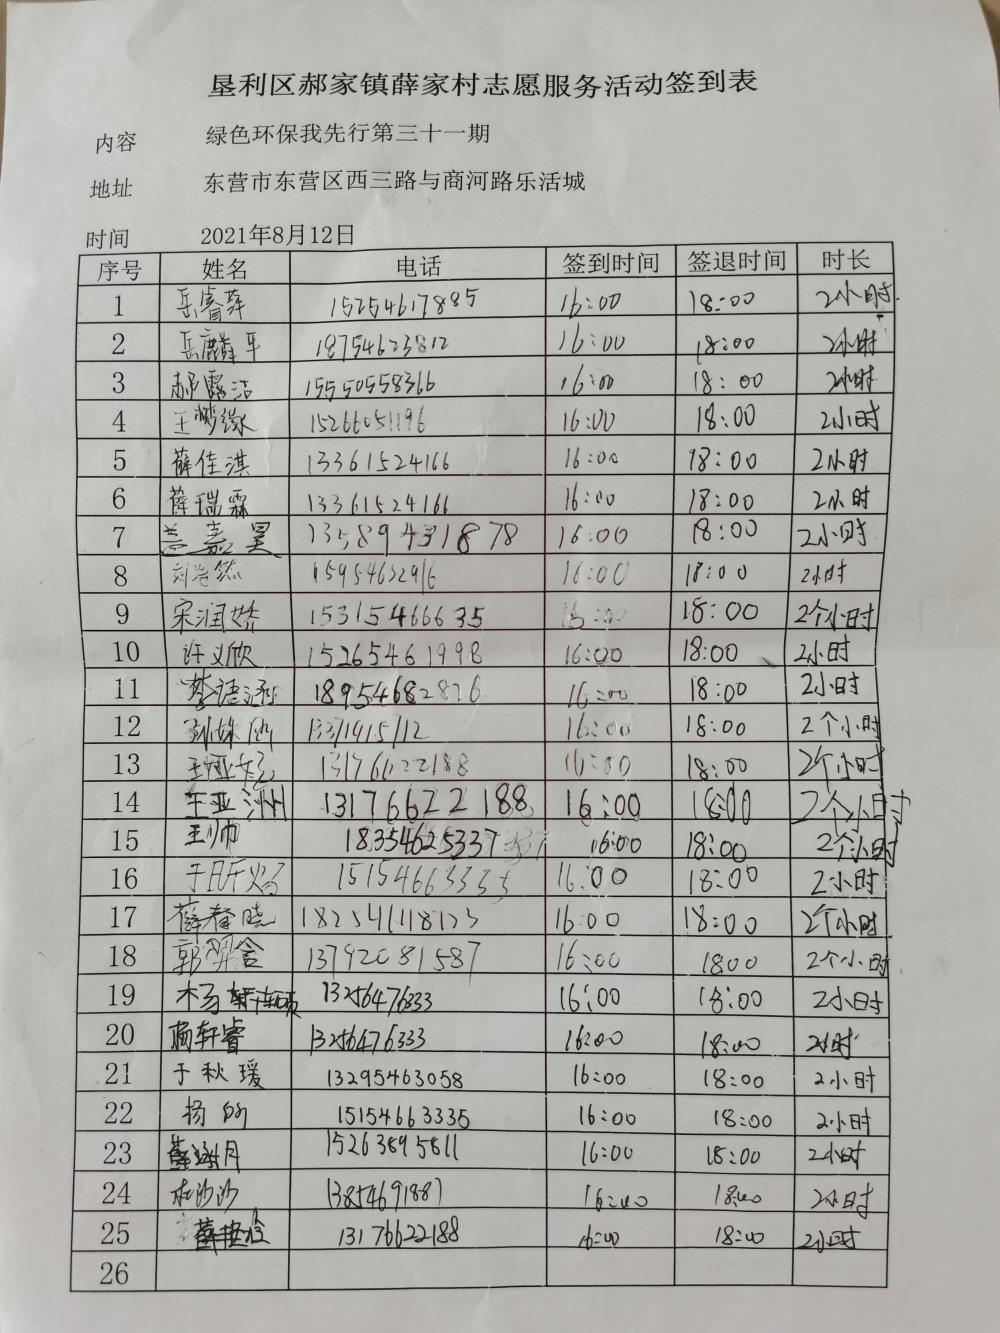 垦利区郝家镇薛家村志愿服务活动签到表
内容 绿色环保我先行第三十一期
地址 东营市东营区西三路与商河路乐活城
时间 2021年8月12日
序号 姓名 电话 签到时间 签退时间 时长
1 岳睿萍 15254617885 16:00 18:00 2小时
2 岳麟平 18754623812 16:00 18:00 2小时
3 郝露洁 15550558366 16:00 18:00 2小时
4 王梦缘 15266051196 16:00 18:00 2小时
5 薛佳淇 13361524166 16:00 18:00 2小时
6 薛瑞霖 13361524166 16:00 18:00 2小时
7 嘉昊 13589431878 16:00 18:00 2小时
8 刘浩然 15954632916 16:00 18:00 2小时
9 宋润娇 15315466635 16:00 18:00 2个小时
10 许义欣 15265461998 16:00 18:00 2小时
11 李语涵 18954682826 16:00 18:00 2小时
12 孙姝 16:00 18:00 2个小时
13 王娅 13176622188 16:00 18:00 2个小时
14 王亚洲 13176622188 16:00 18:00 2个小时
15 王帅 18354625337 16:00 18:00 2个小时
16 于 15154663335 16:00 18:00 2小时
17 薛春晓 18254118123 16:00 18:00 2个小时
18 郭羿含 13792081587 16:00 1800 2个小时
19 杨 13256476333 16:00 18:00 2小时
20 杨轩睿 13256476333 16:00 18:00 2小时
21 于秋瑗 13295463058 16:00 18:00 2小时
22 杨 15154663335 16:00 18:00 2小时
23 薛 月 15263895811 16:00 18:00 2小时
24 杜沙沙 13854691887 16:00 18:00 2小时
25 薛 13176622188 16:00 18:00 2小时
26